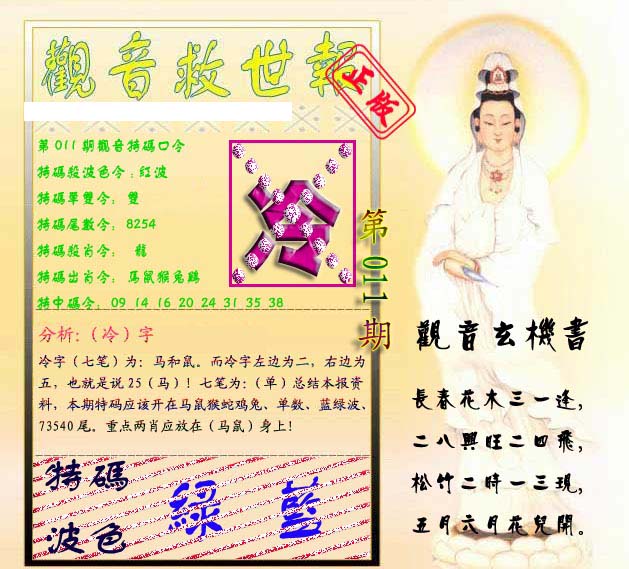 觀音救世報
正版
第011期觀音特碼口令
特碼殺波色令:紅波
特碼單雙令: 雙
特碼尾數令: 8254
特碼殺肖令: 龍
特碼出肖令: 馬鼠猴兔鷄
特中碼令: 09 14 16 20 24 31 35 38
冷
第011期
分析:（冷）字
冷字（七笔）为：马和鼠。而冷字左边为二，右边为
五，也就是说25（马）！七笔为：（单）总结本报资
料，本期特码应该开在马鼠猴蛇鸡兔、单数、蓝绿波、
73540尾。重点两肖应放在（马鼠）身上！
特碼
波色
綠 藍
觀音玄機書
長春花木三一逢,
二八興旺二四飛,
松竹二時一三現,
五月六月花兒開。